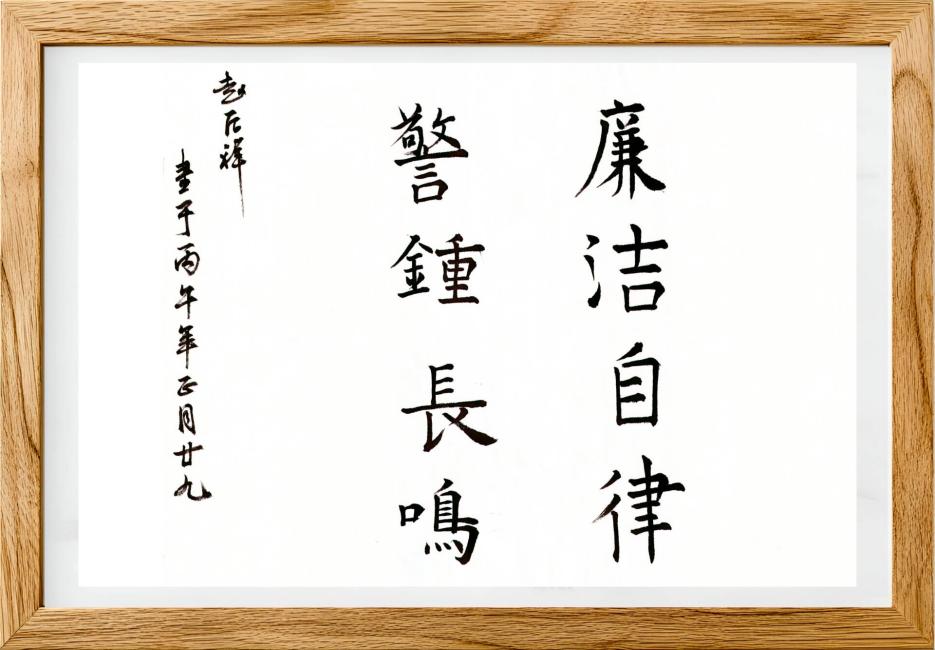 廉洁自律
警鍾長鳴
赵后祥
書于丙午年正月廿九